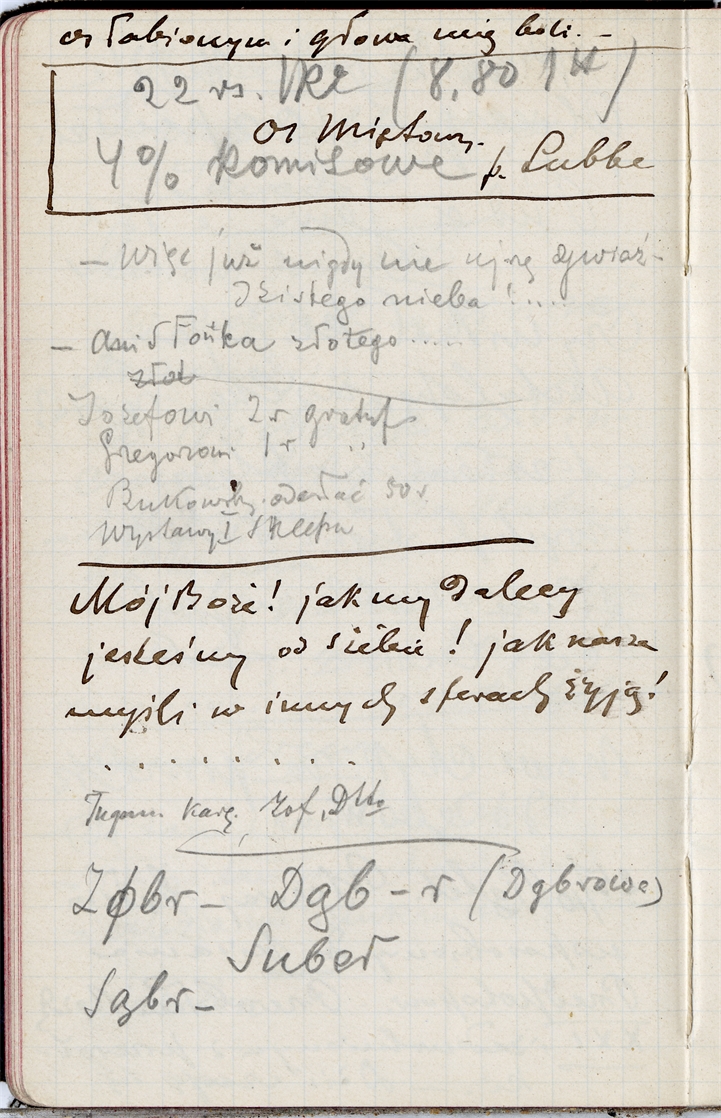 osłabionym i głowa mię boli. –
22 rs. (8,80
Ol Miętowy.
4% komisowe p. Lubbe
– Więc już nigdy nie ujrę gwiaź-
dzistego nieba !....
– Ani słońka złotego.....
złot
Józefowi 2 r gratyf
Gregorowi 1 r "
Bukowsky. odesłać 50 r
Wystawy I sklepu
Mój Boże! jak my dalecy
jesteśmy od siebie ! jak nasze
myśli w innych sferach żyją!
. . . . . . . .
Zof,
Dąb – r (Dąbrowa)
Suber
Sąbr –